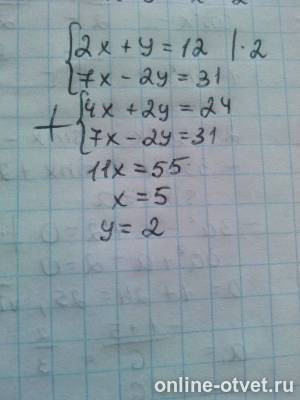 2x + y = 12 | · 2
7x - 2y = 31
+ 4x + 2y = 24
7x - 2y = 31
11x = 55
x = 5
y = 2
online-otvet.ru